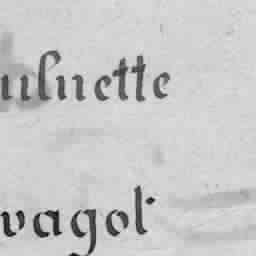 ulnette
vagol·